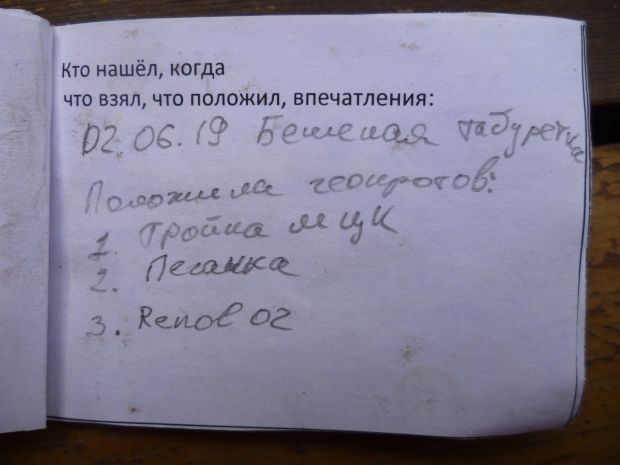 Кто нашёл, когда
что взял, что положил, впечатления:
02.06.19 Бешеная табуретка
Положила геокротов:
1. Тройка МЦК
2. Пеганка
3. Renol 02